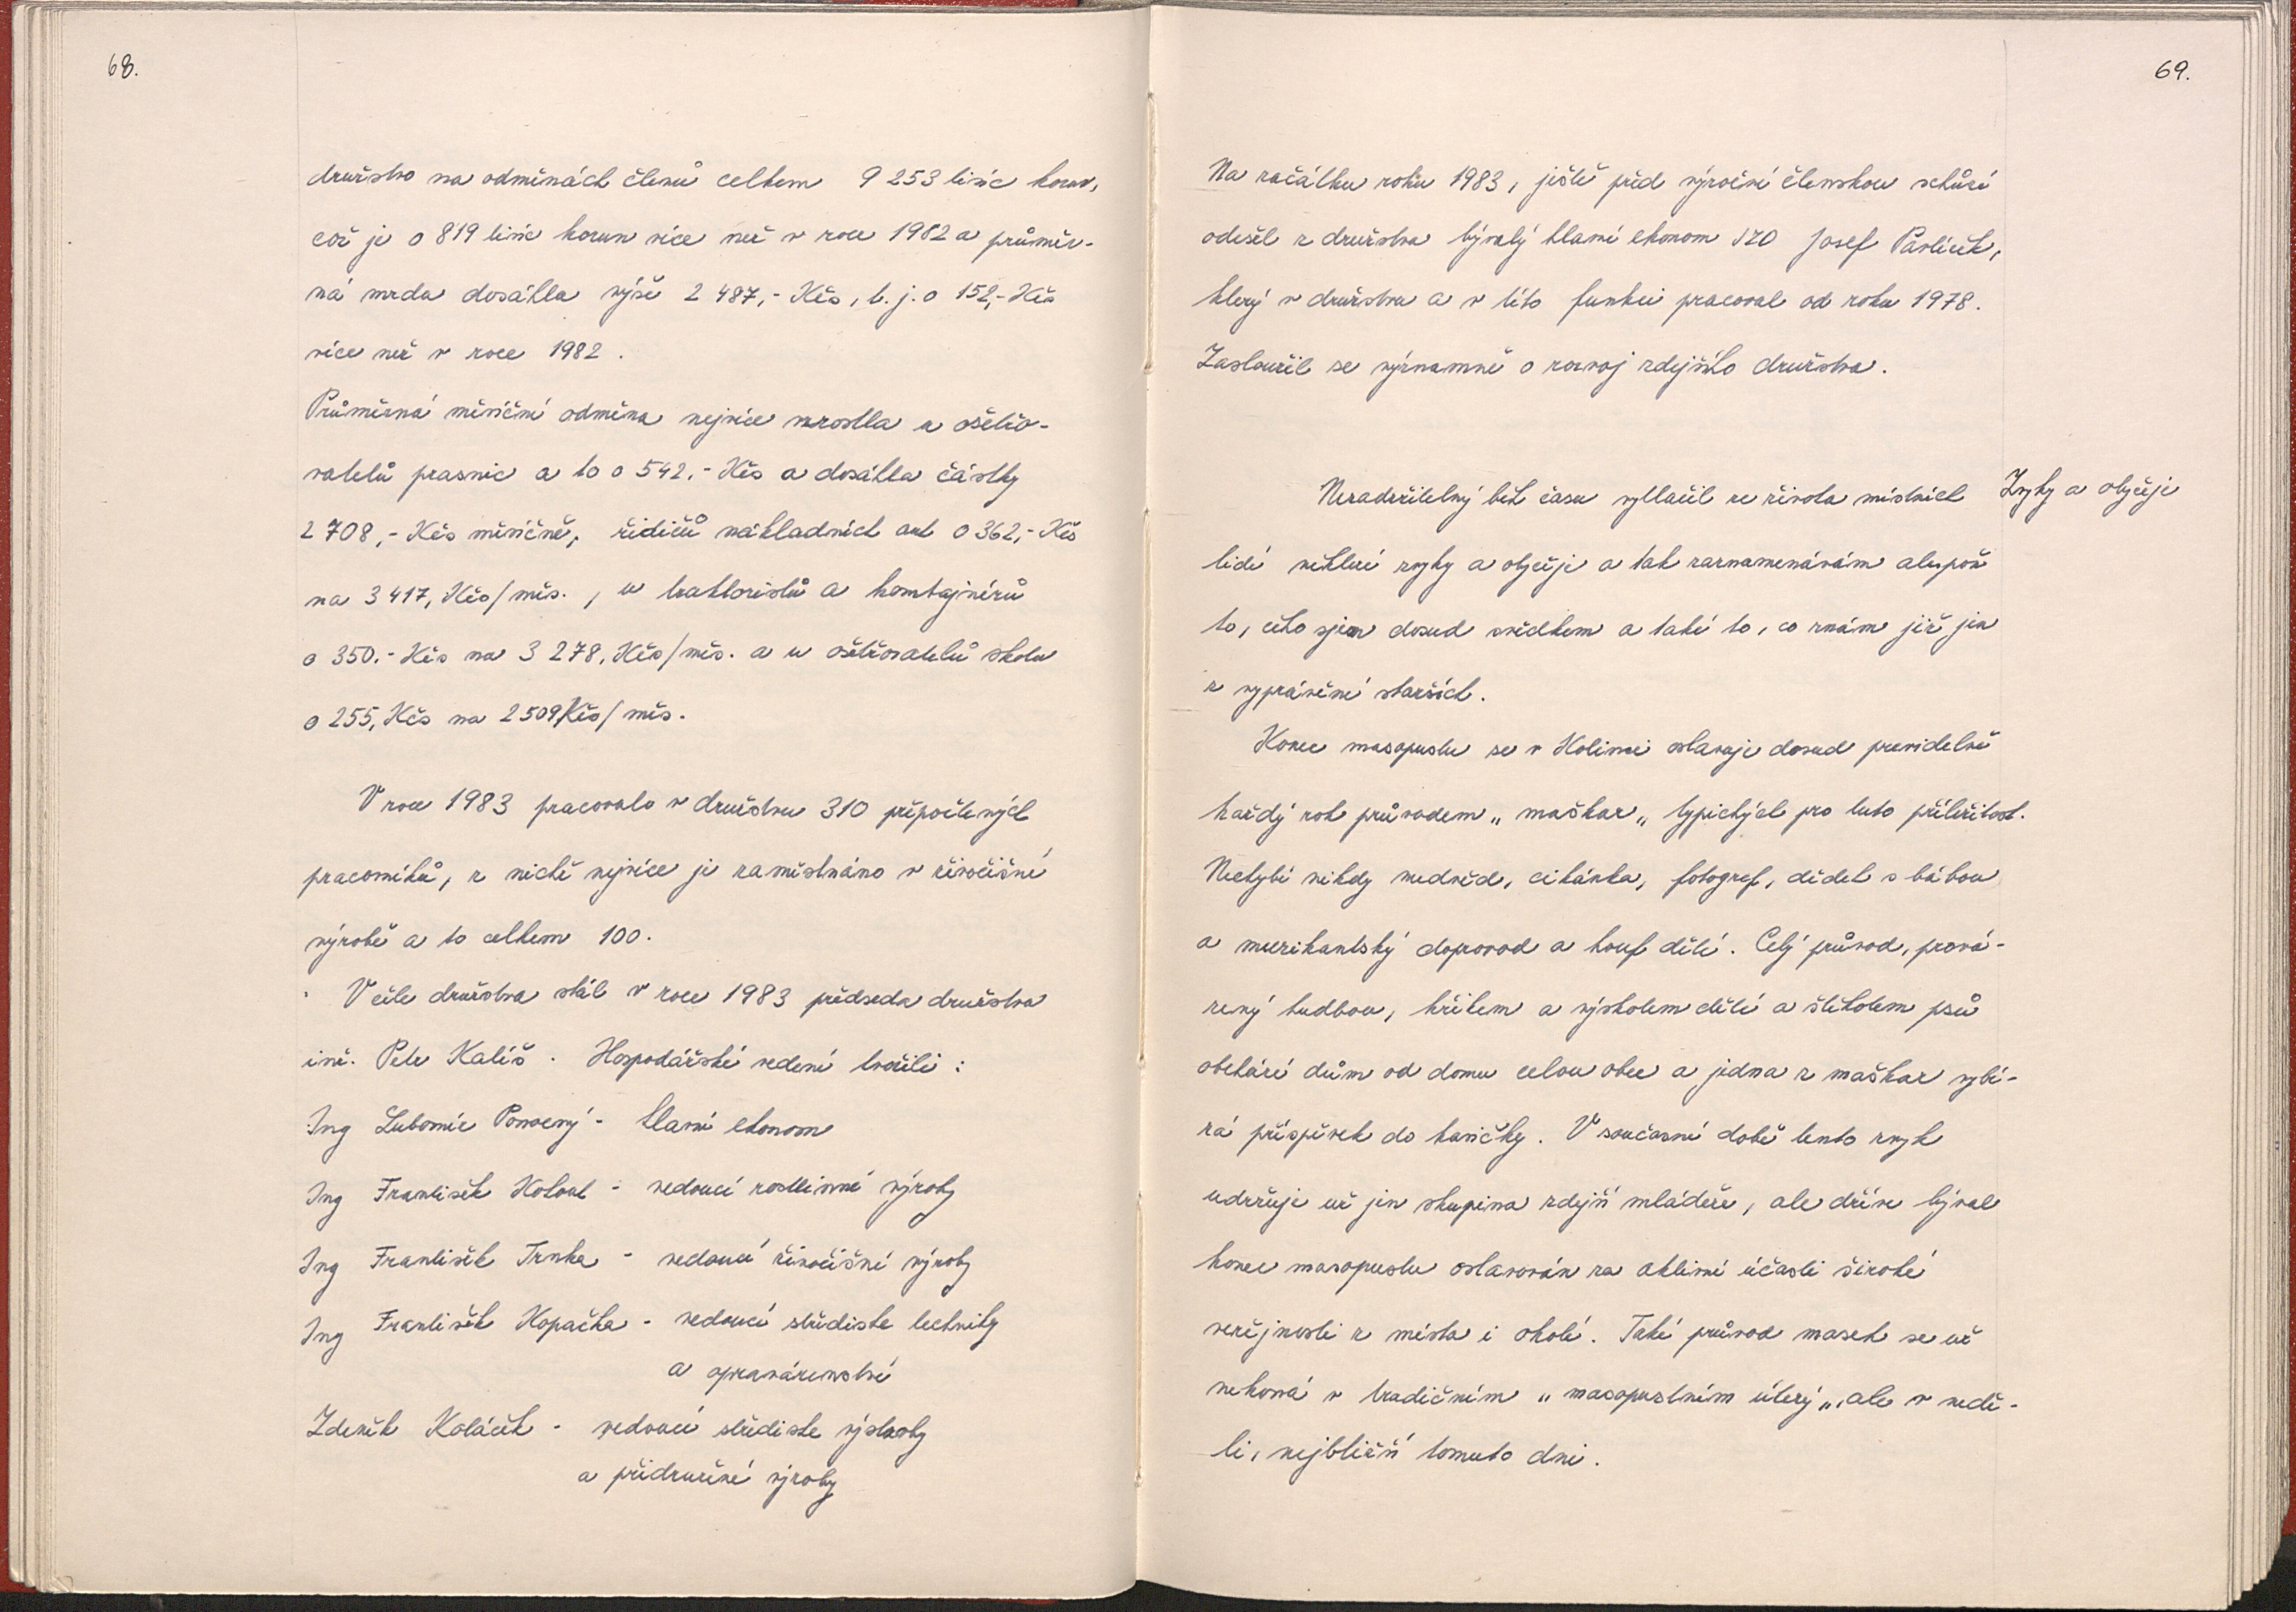 68.
družstvo na odměnách členů celkem 9 253 tisíc korun,
což je o 819 tisíc korun více než v roce 1982 a průměr-
ná mzda dosáhla výše 2 487,- Kčs, t. j. o 152,- Kčs
více než v roce 1982.
Průměrná měsíční odměna nejvíce vzrostla u ošetřo-
vatelů prasnic a to o 542.- Kčs a dosáhla částky
2 708,- Kčs měsíčně, řidičů nákladních aut o 362,- Kčs
na 3 417, Kčs/měs. , u traktoristů a kombajnérů
o 350.- Kčs na 3 278, Kčs/měs. a u ošetřovatelů skotu
o 255, Kčs na 2 509 Kčs/měs.
V roce 1983 pracovalo v družstvu 310 přepočtených
pracovníků, z nichž nejvíce je zaměstnáno v živočišné
výrobě a to celkem 100.
V čele družstva stál v roce 1983 předseda družstva
inž. Petr Kališ. Hospodářské vedení tvořili :
Ing Lubomír Ponocný - hlavní ekonom
Ing František Kolbal - vedoucí rostlinné výroby
Ing František Trnka - vedoucí živočišné výroby
Ing František Kopačka - vedoucí střediska techniky
a opravárenství
Zdeněk Koláček - vedoucí střediska výstavby
a přidružené výroby
69.
Na začátku roku 1983, ještě před výroční členskou schůzí
odešel z družstva bývalý hlavní ekonom JZD Josef Pavlíček,
který v družstvu a v této funkci pracoval od roku 1978.
Zasloužil se významně o rozvoj zdejšího družstva.
Zvyky a obyčeje
Nezadržitelný běh času vytlačil ze života místních
lidí některé zvyky a obyčeje a tak zaznamenávám alespoň
to, čeho sjem dosud svědkem a také to, co znám již jen
z vyprávění starších.
Konec masopustu se v Kolinci oslavuje dosud pravidelně
každý rok průvodem „ maškar „ typických pro tuto příležitost.
Nechybí nikdy medvěd, cikánka, fotograf, dědek s bábou
a muzikantský doprovod a houf dětí. Celý průvod, prová-
zený hudbou, křikem a výskotem dětí a štěkotem psů
obchází dům od domu celou obec a jedna z maškar vybí-
rá příspěvek do kasičky. V současné době tento zvyk
udržuje už jen skupina zdejší mládeže, ale dříve býval
konec masopustu oslavován za aktivní účasti široké
veřejnosti z místa i okolí. Také průvod masek se už
nekoná v tradičním „ masopustním úterý „, ale v nedě-
li, nejbližší tomuto dni.